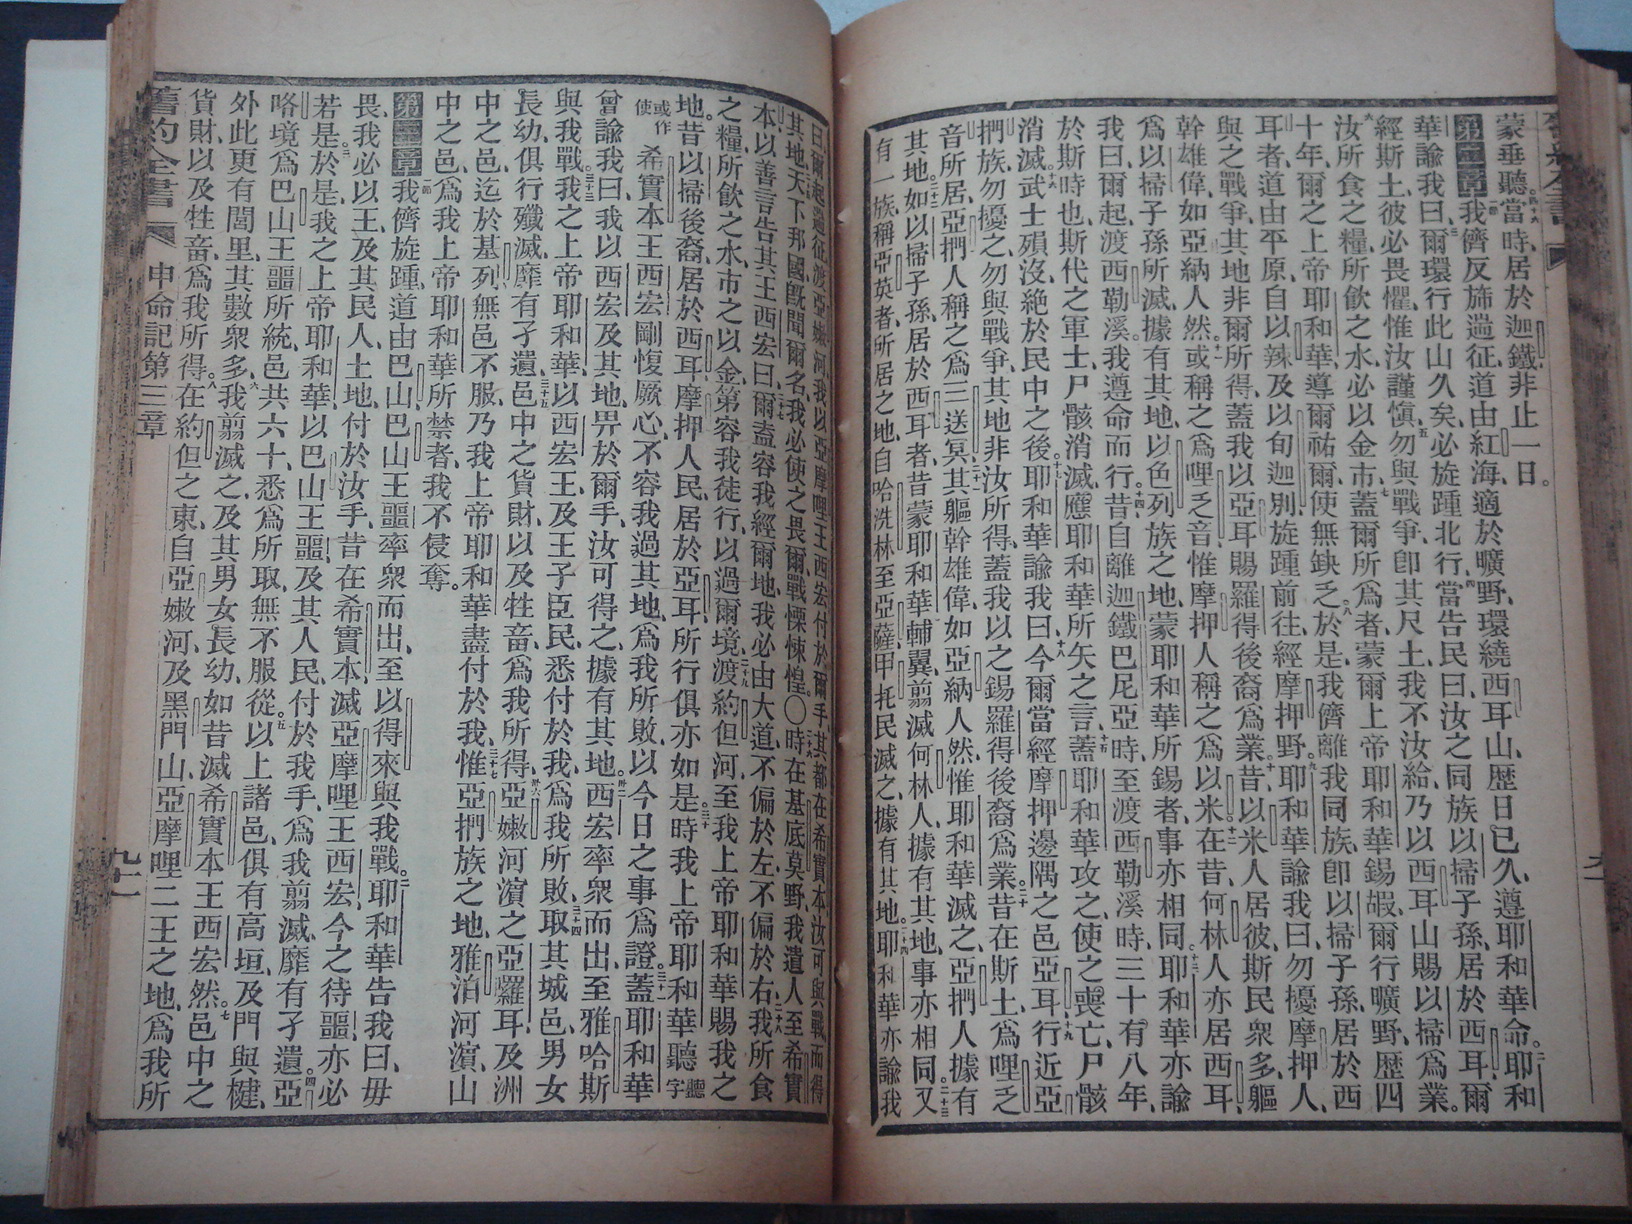 蒙垂聽四十六當時、居於迦鐵、非止一日。
第二章一節我儕反旆遄征、道由紅海、適於曠野、環繞西耳山、歷日已久、遵耶和華命。二耶和
華諭我曰、三爾環行此山久矣、必旋踵北行、四當告民曰、汝之同族、以掃子孫、居於西耳、爾
經斯土、彼必畏懼、惟汝謹愼、五勿與戰爭、卽其尺土、我不汝給、乃以西耳山賜以掃爲業。
六汝所食之糧、所飮之水、必以金市、七蓋爾所爲者、蒙爾上帝耶和華錫嘏、爾行曠野、歷四
十年、爾之上帝耶和華、導爾祐爾、使無缺乏、八於是我儕離我同族、卽以掃子孫、居於西
耳者、道由平原、自以辣、及以旬迦別、旋踵前往、經摩押野、九耶和華諭我曰、勿擾摩押人、
與之戰爭、其地非爾所得、蓋我以亞耳賜羅得後裔爲業、十昔以米人居彼、斯民衆多、軀
幹雄偉、如亞納人然、十一或稱之爲哩乏音、惟摩押人稱之爲以米、十二在昔何林人亦居西耳、
爲以掃子孫所滅、據有其地、以色列族之地、蒙耶和華所錫者、事亦相同、十三耶和華亦諭
我曰、爾起、渡西勒溪、我遵命而行、十四昔自離迦鐵巴尼亞時、至渡西勒溪時、三十有八年、
於斯時也、斯代之軍士、尸骸消滅、應耶和華所矢之言、十五蓋耶和華攻之、使之喪亡、尸骸
消滅、十六武士殞沒、絕於民中之後、十七耶和華諭我曰、十八今爾當經摩押邊隅之邑亞耳、十九行近亞
捫族、勿擾之、勿與戰爭、其地非汝所得、蓋我以之錫羅得後裔爲業、二十昔在斯土、爲哩乏
音所居、亞捫人稱之爲三送冥、二十一其軀幹雄偉、如亞納人然、惟耶和華滅之、亞捫人據有
其地、二十二如以掃子孫、居於西耳者、昔蒙耶和華輔翼、翦滅何林人、據有其地、事亦相同、二十三又
有一族、稱亞英者、所居之地、自哈洗林至亞薩、甲托民滅之、據有其地、二十四耶和華亦諭我
曰、爾起遄征、渡亞嫩河、我以亞摩哩王西宏付於爾手、其都在希實本、汝可與戰、而得
其地、二十五天下邦國、旣聞爾名、我必使之畏爾、戰慄悚惶。〇二十六時在基底莫野、我遣人至希實
本、以善言告其王西宏曰、二十七爾盍容我經爾地、我必由大道、不偏於左、不偏於右、二十八我所食
之糧、所飮之水、市之以金、第容我徒行、以過爾境、二十九渡約但河、至我上帝耶和華賜我之
地、昔以掃後裔、居於西耳、摩押人民、居於亞耳、所行俱亦如是、三十時我上帝耶和華聽聽字
或作使希實本王西宏剛愎厥心、不容我過其地、爲我所敗、以今日之事爲證、三十一蓋耶和華
曾諭我曰、我以西宏及其地、畀於爾手、汝可得之、據有其地、三十二西宏率衆而出、至雅哈斯
與我戰、三十三我之上帝耶和華、以西宏王、及王子臣民、悉付於我、爲我所敗、三十四取其城邑、男女
長幼、俱行殲滅、靡有孑遺、三十五邑中之貨財、以及牲畜、爲我所得、三十六亞嫩河濱之亞羅耳、及洲
中之邑、迄於基列、無邑不服、乃我上帝耶和華盡付於我、三十七惟亞捫族之地、雅泊河濱、山
中之邑、爲我上帝耶和華所禁者、我不侵奪。
第三章一節我儕旋踵、道由巴山、巴山王噩率衆而出、至以得來與我戰。二耶和華告我曰、毋
畏、我必以王、及其民人土地、付於汝手、昔在希實本、滅亞摩哩王西宏、今之待噩、亦必
若是、三於是我之上帝耶和華、以巴山王噩、及其人民、付於我手、爲我翦滅、靡有孑遺、四亞
咯境爲巴山王噩所統、邑共六十、悉爲所取、無不服從、五以上諸邑、俱有高垣、及門與楗、
外此更有閭里、其數衆多、六我翦滅之、及其男女長幼、如昔滅希實本王西宏然。七邑中之
貨財、以及牲畜、爲我所得、八在約但之東、自亞嫩河、及黑門山、亞摩哩二王之地、爲我所
舊約全書 申命記第三章 九十一